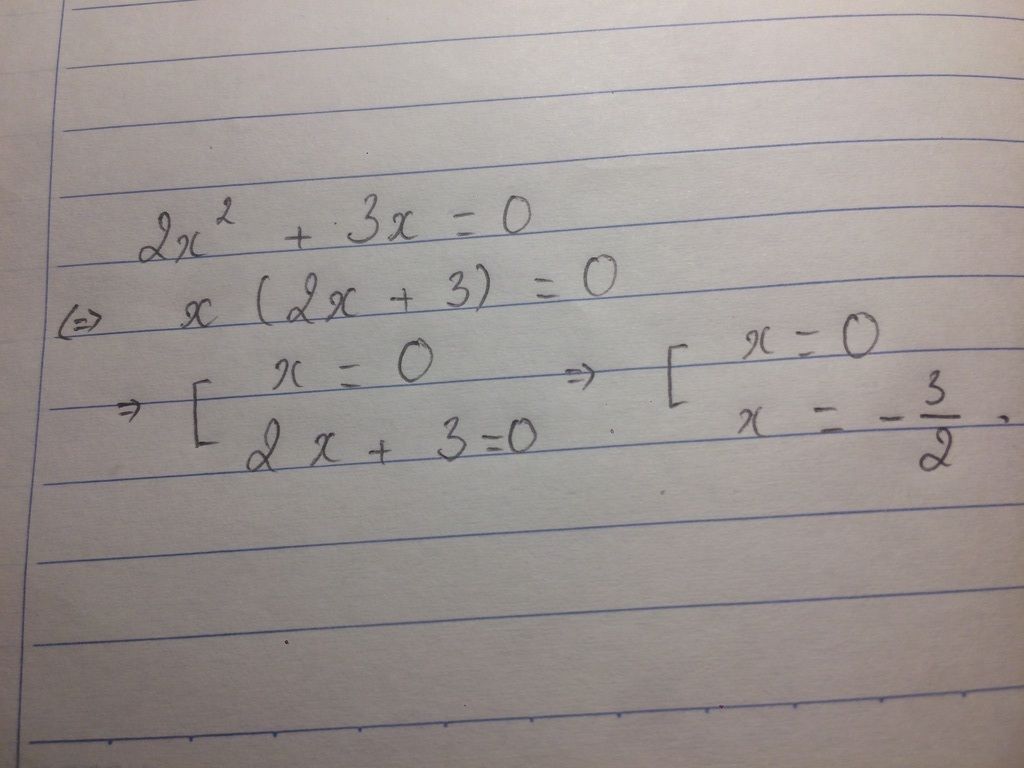 2x² + 3x = 0
(=> x (2x + 3) = 0
=> [ x = 0 => [ x = 0
2x + 3 = 0 x = -3/2.